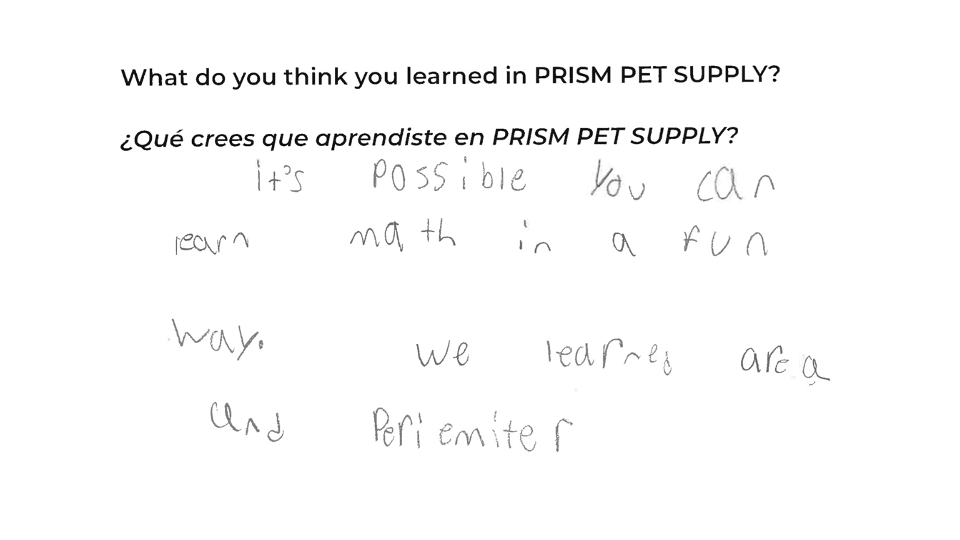 What do you think you learned in PRISM PET SUPPLY?
¿Qué crees que aprendiste en PRISM PET SUPPLY?
it's possible you can
learn math in a fun
way. we learned area
and Periemiter